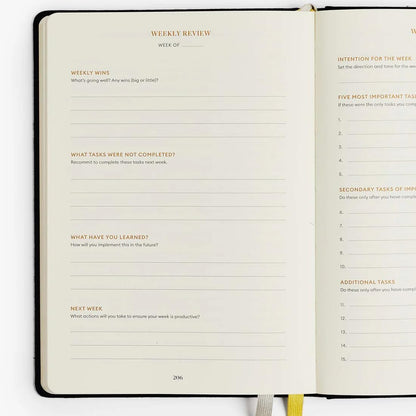 WEEKLY REVIEW
WEEK OF
WEEKLY WINS
What's going well? Any wins (big or little)?
WHAT TASKS WERE NOT COMPLETED?
Recommit to complete these tasks next week.
WHAT HAVE YOU LEARNED?
How will you implement this in the future?
NEXT WEEK
What actions will you take to ensure your week is productive?
206
W
INTENTION FOR THE WEEK
Set the direction and tone for the
FIVE MOST IMPORTANT
If these were the only tasks you
1.
2.
3.
4.
5.
SECONDARY TASKS OF
Do these only after you have
6.
7.
8.
9.
10.
ADDITIONAL TASKS
Do these only after you have
11.
12.
13.
14.
15.